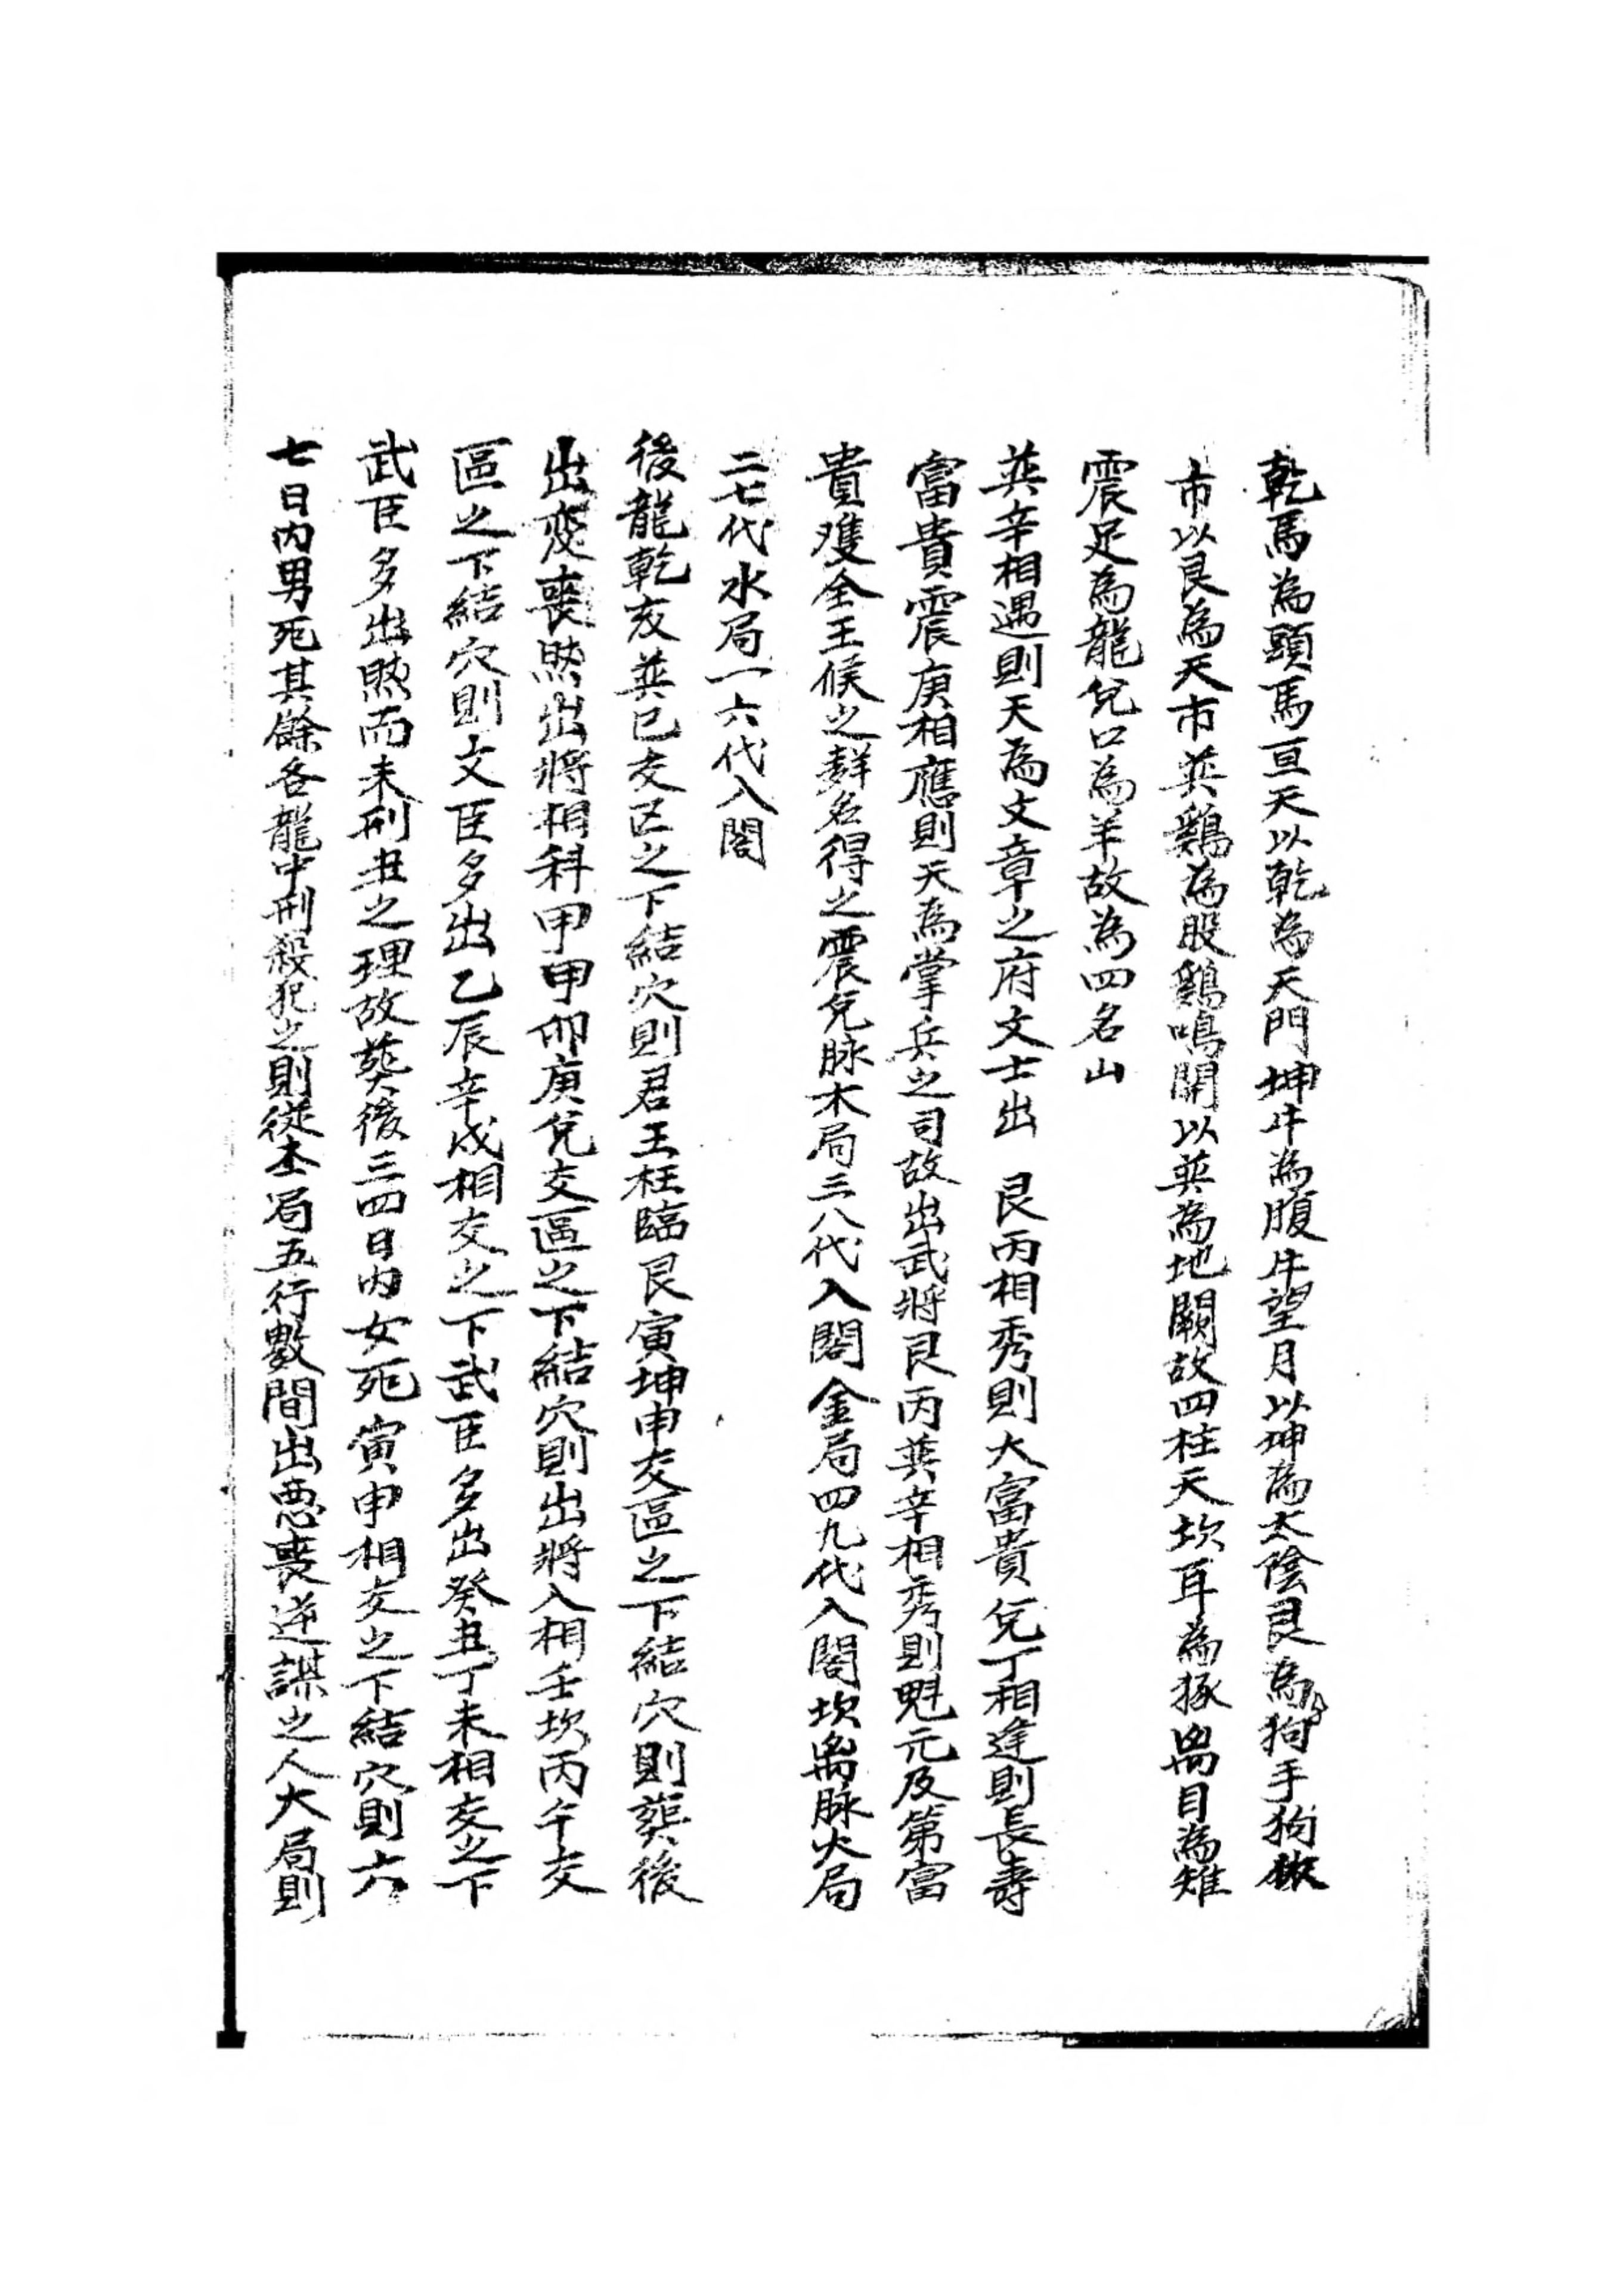 乾馬為頭馬亘天以乾為天門坤牛為腹牛望月以坤為太陰艮為狗手狗
市以艮為天市巽鷄為股鷄鳴開以巽為地闕故四柱天坎耳為豚离目為雉
震足為龍兌口為羊故為四名山
巽辛相遇則天為文章之府文士出 艮丙相秀則大富貴兌丁相逢則長壽
富貴震庚相應則天為掌兵之司故出武將艮丙巽辛相秀則魁元及第富
貴雙全王候之群名得之震兌脉木局三八代入閣金局四九代入閣坎离脉火局
二七代水局一六代入閣
後龍乾亥巽巳交区之下結穴則君王枉臨艮寅坤申交區之下結穴則葬後
出変喪然出將相科甲甲卯庚兌交區之下結穴則出將入相壬坎丙午交
區之下結穴則文臣多出乙辰辛戌相交之下武臣多出癸丑丁未相交之下
武臣多出然而未刑丑之理故葬後三四日內女死寅申相交之下結穴則六
七日內男死其餘各龍中刑殺犯之則從本局五行數間出惡喪逆謀之人大局則